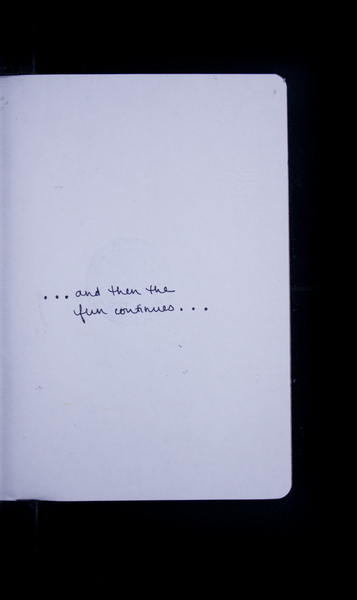 ...and then the
fun continues...